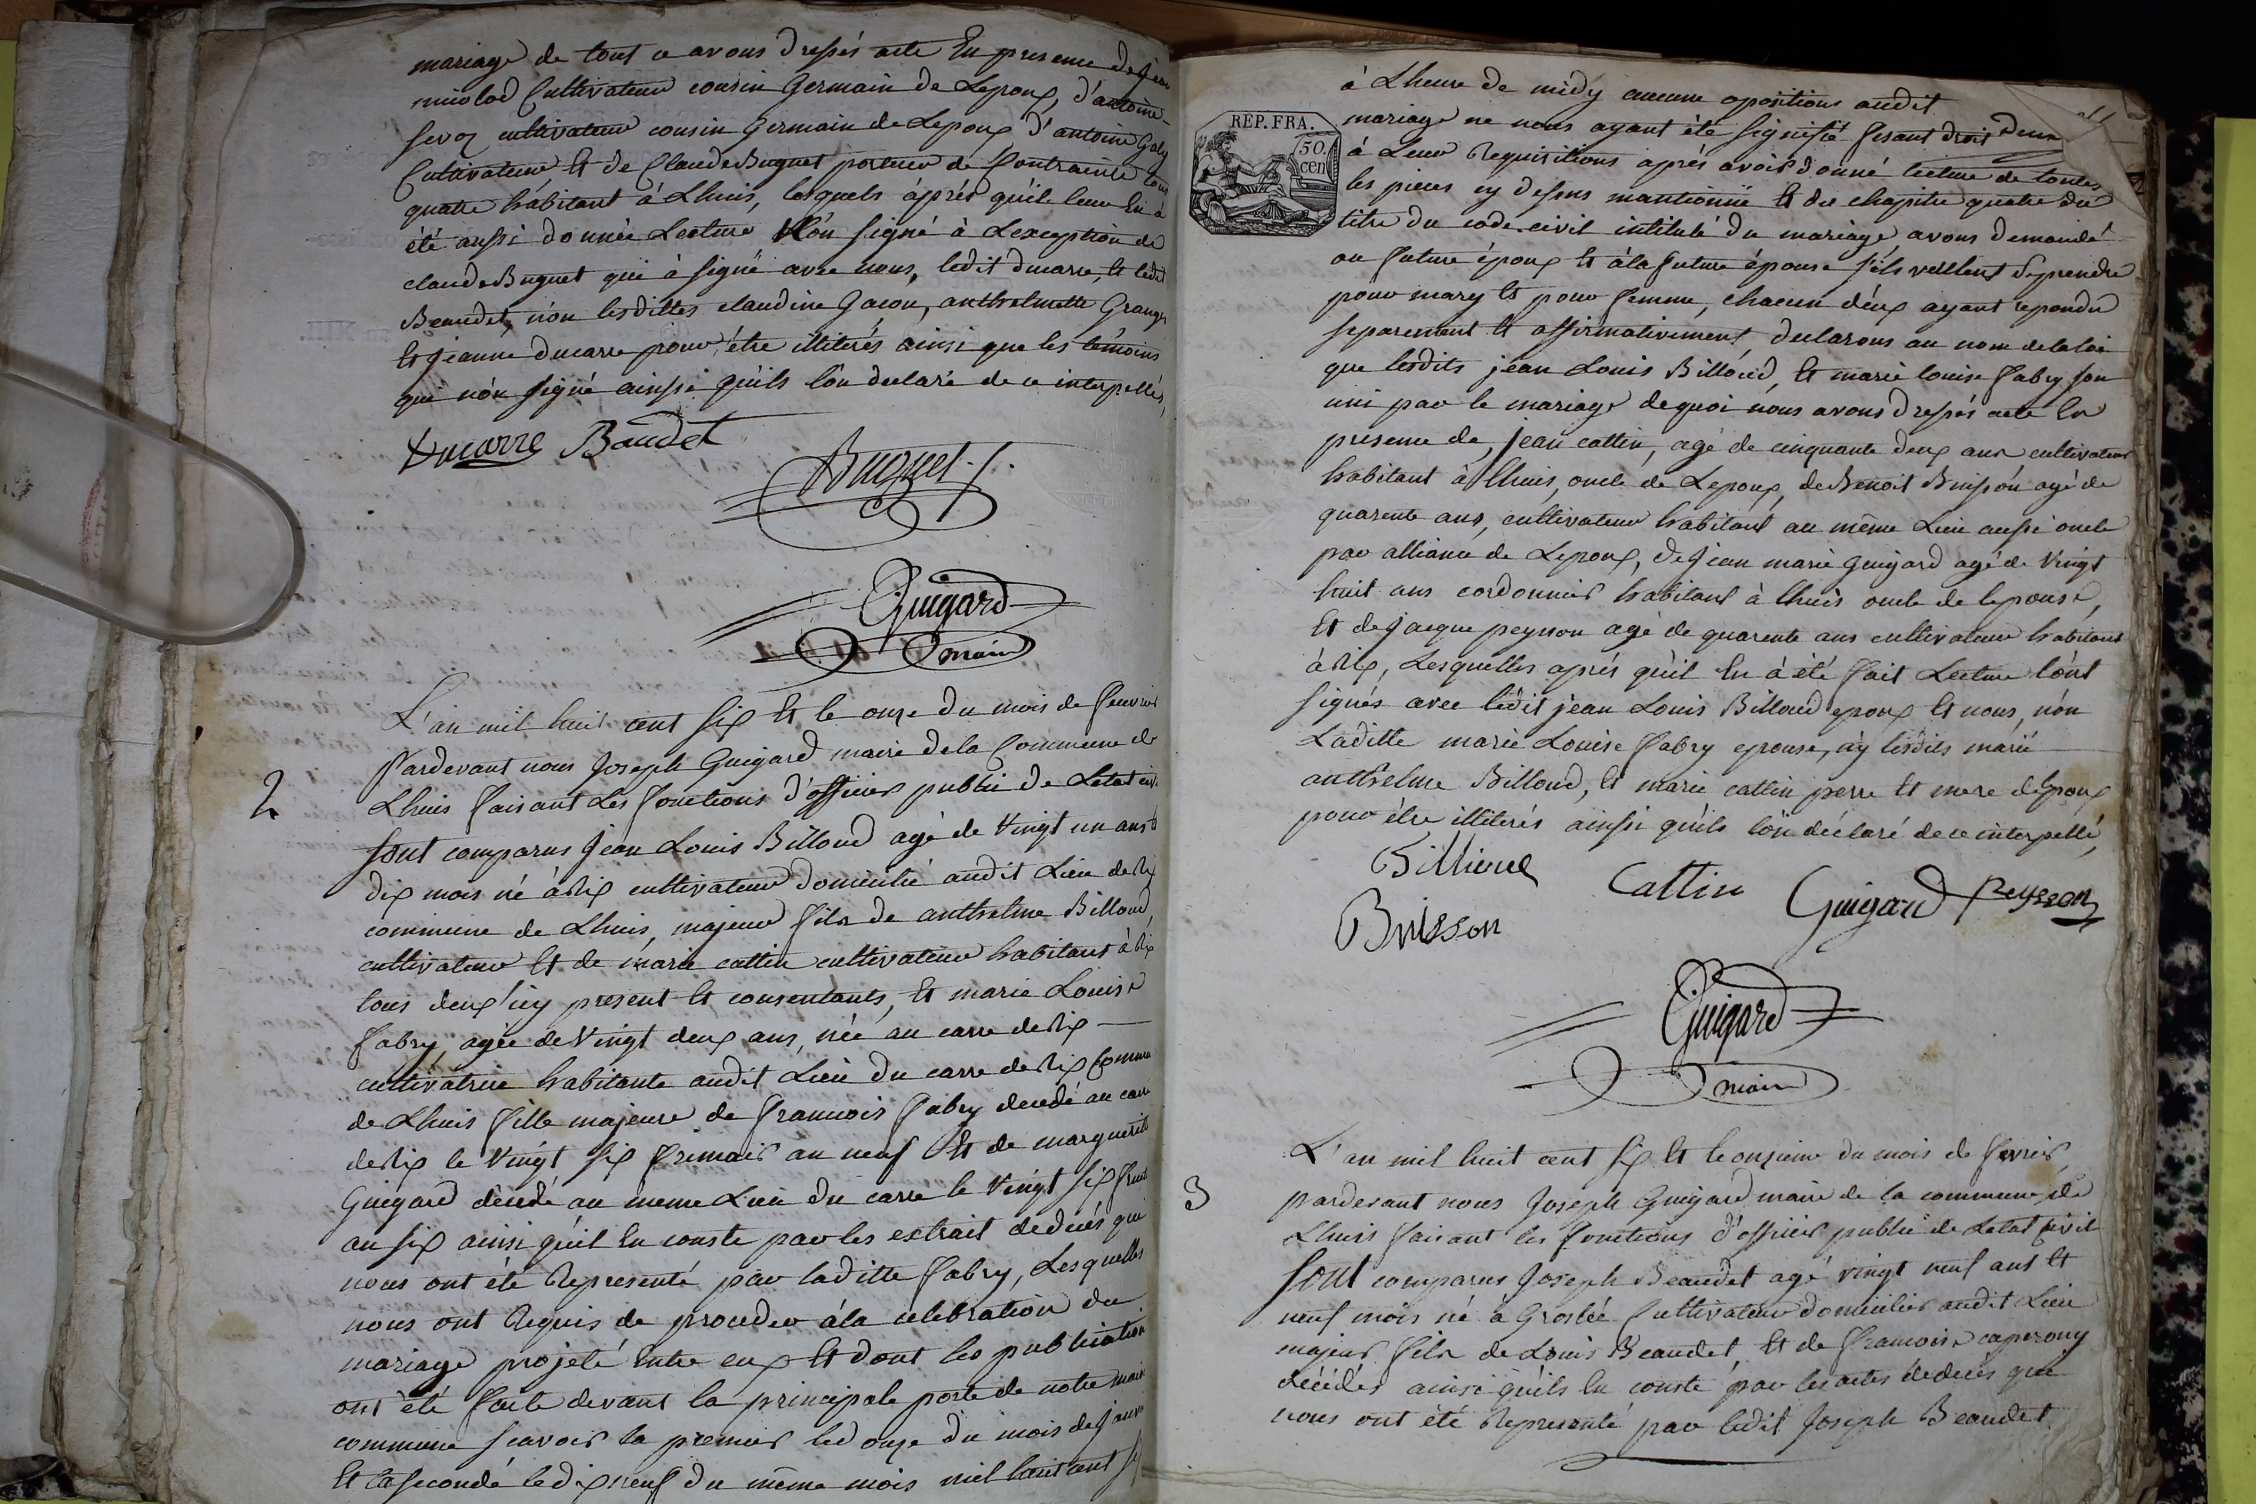 mariage de tout ce avons dressés acte En presence de Jean
cultivateur cousin Germain de Lepoux, d'antoine
cultivateur cousin germain de Lepoux d'antoine Galy
Cultivateur Et de Claude Buguet porteur de Contrainte tous
quatre habitant à Lhuis, lesquels après qu'il leur En à
été aussi donnée Lecture N'ón signé à Lexception de
claude Buguet qui à signé avec nous, ledit ducarre, Et ledit
Beaudet, nón lesdittes claudine Gacon, anthelmette Granger
Et jeanne ducarre pour être illiterés ainsi que les témoins
qui nón signé ainssi qu'ils lón declaré de ce interpellés,
Ducarre Baudet
Buguet
Guigard
maire
2
L'an mil huit cent six Et le onze du mois de feuvrier
Pardevant nous Joseph Guigard maire dela Commune de
Lhuis faisant Les fonctions d'officier public de Letat civil
Sont comparus Jean Louis Billoud agé de Vingt un ans Et
dix mois né à Rix cultivateur domicilié audit Lieu de Rix
commune de Lhuis, majeur fils de anthelme Billoud,
cultivateur Et de marie cattin cultivateur habitant à Rix
tous deux icy present Et consentants, Et marie Louise
fabry agée de Vingt deux ans, née au carre de Rix
cultivatrice habitante audit Lieu du carre de Rix Commune
de Lhuis fille majeure de francois fabry decedé au carre
de Rix le Vingt six frimair an neuf Et de marguerite
Guigard décédé au meme Lieu du carre le Vingt six fruct
an six ainsi qu'il En conste par les extrait de decés qui
nous ont été Representé par laditte fabry, Lesquelles
nous ont Requis de proceder à la celebration du
mariage projeté Entre eux Et dont les publication
ont été faite devant la principale porte de notre maison
commune scavoir la premier led onze du mois de janv
Et la seconde le dixneuf du même mois mil huit cent six
à Lheure de midy aucune opositions audit
REP. FRA.
50.
cen
mariage ne nous ayant été signifié fesant droit
à Leur Requisitions aprés avoir donné lecture de toutes
les pieces cy desens mantionnie Et du chapitre quatre du
titre du code civil intitulé du mariage, avons demandé
au futur époux Et à la future épouse s'ils veullent se prendre
pour mary Et pour femme, chacun d'eux ayant repondu
separement Et affirmativement, declarons au nom de la loi
que lesdits jean Louis Billoud, Et marie louise fabry son
uni par le mariage de quoi nous avons dressés acte En
presence de, jean cattin, agé de cinquante deux ans cultivateur
habitant à Lhuis, oncle de Lepoux, de Benoit Buisson agé de
quarente ans, cultivateur habitant au même Lieu aussi oncle
par alliance de Lepoux, de Jean marie Guigard agé de Vingt
huit ans cordonnier habitant à Lhuis oncle de lepouse,
Et de Jacque peysson agé de quarente ans cultivateur habitant
à Rix, Lesquelles aprés qu'il En à été fait Lecture l'ónt
signés avec ledit jean Louis Billoud epoux Et nous, nón
Laditte marie Louise fabry epouse, ny lesdits marié
anthelme Billoud, Et marie cattin perre Et mere de lépoux
pour être illiterés ainssi qu'ils lón déclaré de ce interpellé,
Billioud Cattin Guigard Peysson
Buisson
Guigard
maire
3
L'an mil huit cent six Et le onzieme du mois de fevrier
pardevant nous Joseph Guigard maire de la commune de
Lhuis faisant les fonctions d'officier public de Letat Civil
Sont comparus Joseph Beaudet agé vingt neuf ans Et
neuf mois né à Groslée Cultivateur domicilier audit Lieu
majeur fils de Louis Beaudet, Et de francoise caperony
décédés ainsi qu'ils En conste par les actes de deces que
nous ont été Representé par ledit Joseph Beaudet